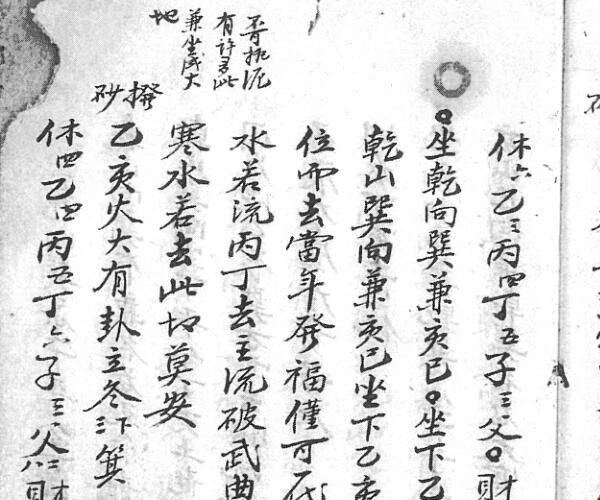 休六乙三丙四丁五子三父〇財
坐乾向巽兼亥巳〇坐下乙
乾山巽向兼亥巳坐下乙亥
位而去當年發福僅可
水若流丙丁去主流破武曲
寒水若去此切莫安
乙亥火大有卦立冬三下箕
休四乙四丙五丁六子三父
有許多此
兼坐戌大
地
撥砂